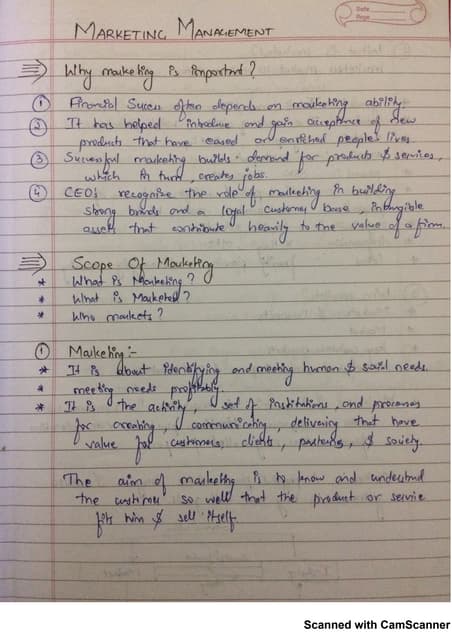 Date
Page
MARKETING MANAGEMENT
Why marketing is important?
① Financial Success often depends on marketing ability
② It has helped introduce and gain acceptance of new
products that have eased or enriched people's lives.
③ Successful marketing builds demand for products & services,
which in turn, creates jobs.
④ CEO's recognize the role of marketing in building
strong brands and a loyal customer base, intangible
assets that contribute heavily to the value of a firm.
Scope Of Marketing
* What is Marketing?
* What is Marketed?
* Who markets?
① Marketing:-
* It is about identifying and meeting human & social needs.
* meeting needs profitably.
* It is the activity, set of institutions, and processes
for creating, communicating, delivering that have
value for customers, clients, partners, & society.
The aim of marketing is to know and understand
the customer so well that the product or service
fits him & sell itself.
Scanned with CamScanner